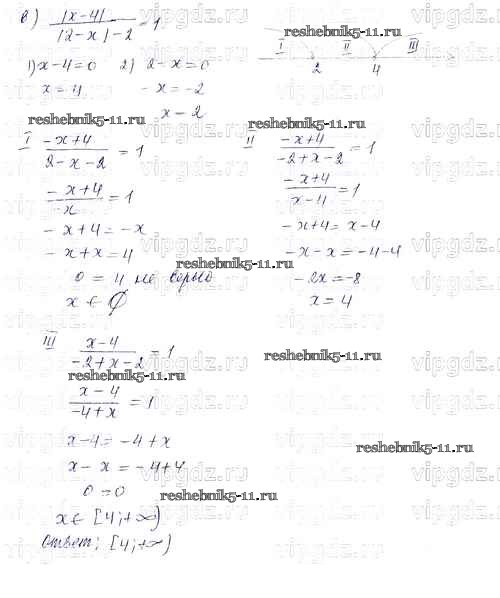 в) |x-4| / |2-x|-2 = 1.
1) x-4=0 2) 2-x=0
x=4 -x=-2
x-2
I II III
2 4
I -x+4 / 2-x-2 = 1
-x+4 / -x = 1
-x+4=-x
-x+x=4
0=4 не верно
x ∈ ∅
II -x+4 / -2+x-2 = 1
-x+4 / x-4 = 1
-x+4=x-4
-x-x=-4-4
-2x=-8
x=4
III x-4 / -2+x-2 = 1
x-4 / -4+x = 1
x-4=-4+x
x-x=-4+4
0=0
x∈[4;+∞)
Ответ: [4;+∞)
reshebnik5-11.ru
reshebnik5-11.ru
reshebnik5-11.ru
reshebnik5-11.ru
reshebnik5-11.ru
reshebnik5-11.ru
reshebnik5-11.ru
reshebnik5-11.ru
vipgdz.ru